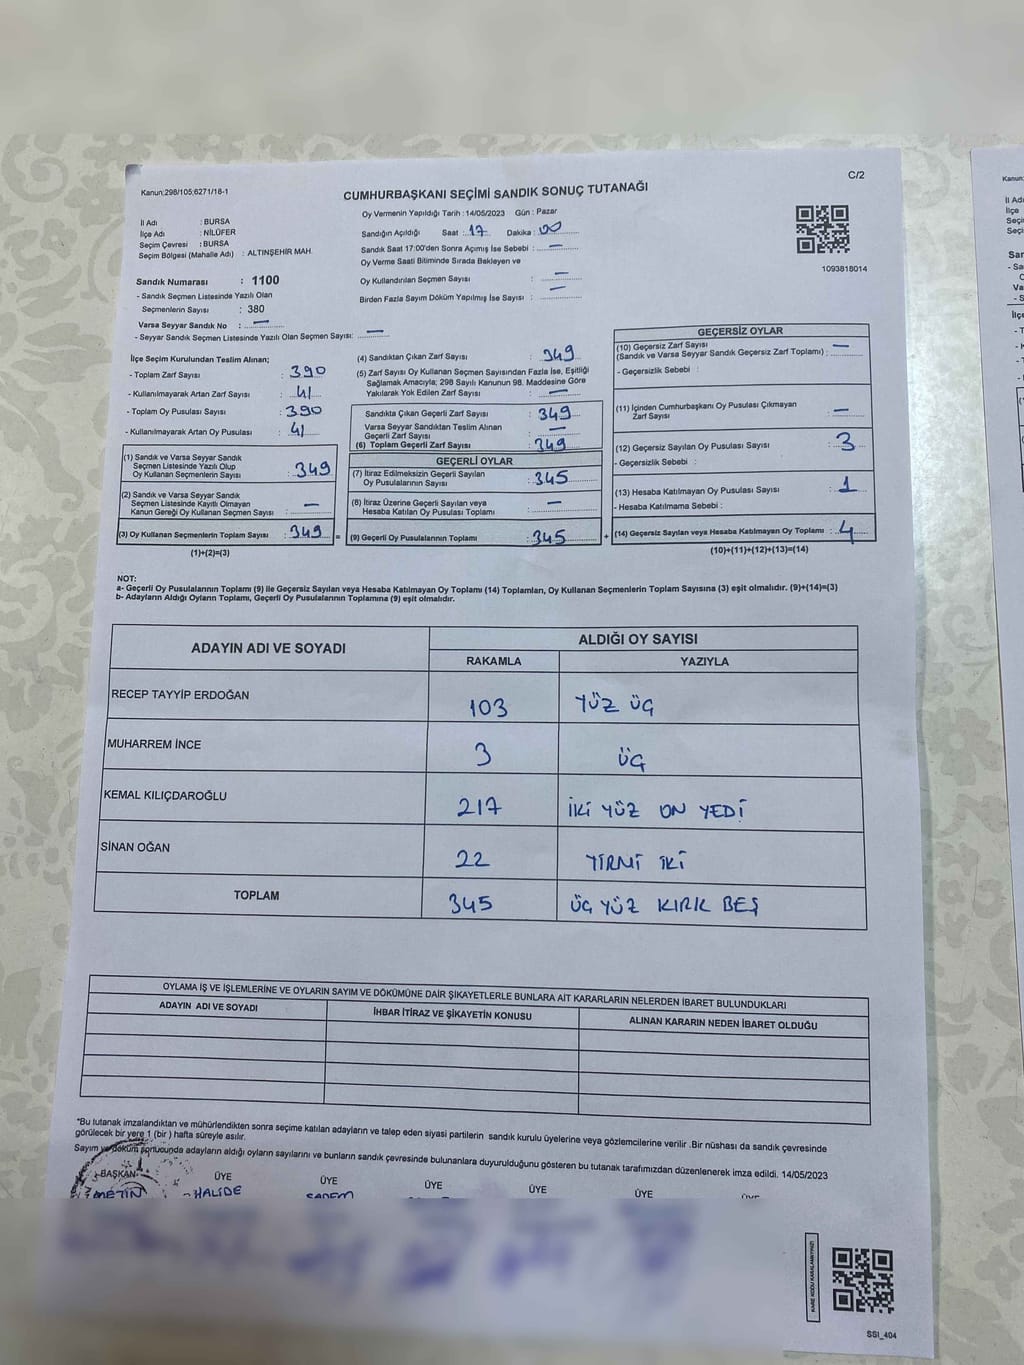 C/2
Kanun:298/105;6271/18-1
CUMHURBAŞKANI SEÇİMİ SANDIK SONUÇ TUTANAĞI
İl Adı : BURSA
İlçe Adı : NİLÜFER
Seçim Çevresi : BURSA
Seçim Bölgesi (Mahalle Adı) : ALTINŞEHİR MAH.
Oy Vermenin Yapıldığı Tarih : 14/05/2023 Gün : Pazar
Sandığın Açıldığı Saat : 17 Dakika : 00
Sandık Saat 17:00'den Sonra Açılmış İse Sebebi : —
Oy Verme Saati Bitiminde Sırada Bekleyen ve
Oy Kullandırılan Seçmen Sayısı : —
Birden Fazla Sayım Döküm Yapılmış İse Sayısı : —
1093818014
Sandık Numarası : 1100
- Sandık Seçmen Listesinde Yazılı Olan
Seçmenlerin Sayısı : 380
Varsa Seyyar Sandık No : —
- Seyyar Sandık Seçmen Listesinde Yazılı Olan Seçmen Sayısı: —
İlçe Seçim Kurulundan Teslim Alınan;
- Toplam Zarf Sayısı : 390
- Kullanılmayarak Artan Zarf Sayısı : 41
- Toplam Oy Pusulası Sayısı : 390
- Kullanılmayarak Artan Oy Pusulası : 41
(1) Sandık ve Varsa Seyyar Sandık
Seçmen Listesinde Yazılı Olup
Oy Kullanan Seçmenlerin Sayısı : 349
(2) Sandık ve Varsa Seyyar Sandık
Seçmen Listesinde Kayıtlı Olmayan
Kanun Gereği Oy Kullanan Seçmen Sayısı : —
(3) Oy Kullanan Seçmenlerin Toplam Sayısı : 349 =
(1)+(2)=(3)
(4) Sandıktan Çıkan Zarf Sayısı : 349
(5) Zarf Sayısı Oy Kullanan Seçmen Sayısından Fazla İse, Eşitliği
Sağlamak Amacıyla; 298 Sayılı Kanunun 98. Maddesine Göre
Yakılarak Yok Edilen Zarf Sayısı : —
Sandıkta Çıkan Geçerli Zarf Sayısı : 349
Varsa Seyyar Sandıktan Teslim Alınan
Geçerli Zarf Sayısı : —
(6) Toplam Geçerli Zarf Sayısı : 349
GEÇERLİ OYLAR
(7) İtiraz Edilmeksizin Geçerli Sayılan
Oy Pusulalarının Sayısı : 345
(8) İtiraz Üzerine Geçerli Sayılan veya
Hesaba Katılan Oy Pusulası Toplamı : —
(9) Geçerli Oy Pusulalarının Toplamı : 345 +
GEÇERSİZ OYLAR
(10) Geçersiz Zarf Sayısı
(Sandık ve Varsa Seyyar Sandık Geçersiz Zarf Toplamı) : —
- Geçersizlik Sebebi :
(11) İçinden Cumhurbaşkanı Oy Pusulası Çıkmayan
Zarf Sayısı : —
(12) Geçersiz Sayılan Oy Pusulası Sayısı : 3
- Geçersizlik Sebebi :
(13) Hesaba Katılmayan Oy Pusulası Sayısı : 1
- Hesaba Katılmama Sebebi :
(14) Geçersiz Sayılan veya Hesaba Katılmayan Oy Toplamı : 4
(10)+(11)+(12)+(13)=(14)
NOT:
a- Geçerli Oy Pusulalarının Toplamı (9) ile Geçersiz Sayılan veya Hesaba Katılmayan Oy Toplamı (14) Toplamları, Oy Kullanan Seçmenlerin Toplam Sayısına (3) eşit olmalıdır. (9)+(14)=(3)
b- Adayların Aldığı Oyların Toplamı, Geçerli Oy Pusulalarının Toplamına (9) eşit olmalıdır.
ADAYIN ADI VE SOYADI ALDIĞI OY SAYISI
RAKAMLA YAZIYLA
RECEP TAYYİP ERDOĞAN 103 YÜZ ÜÇ
MUHARREM İNCE 3 ÜÇ
KEMAL KILIÇDAROĞLU 217 İKİ YÜZ ON YEDİ
SİNAN OĞAN 22 YİRMİ İKİ
TOPLAM 345 ÜÇ YÜZ KIRK BEŞ
OYLAMA İŞ VE İŞLEMLERİNE VE OYLARIN SAYIM VE DÖKÜMÜNE DAİR ŞİKAYETLERLE BUNLARA AİT KARARLARIN NELERDEN İBARET BULUNDUKLARI
ADAYIN ADI VE SOYADI İHBAR İTİRAZ VE ŞİKAYETİN KONUSU ALINAN KARARIN NEDEN İBARET OLDUĞU
*Bu tutanak imzalandıktan ve mühürlendikten sonra seçime katılan adayların ve talep eden siyasi partilerin sandık kurulu üyelerine veya gözlemcilerine verilir .Bir nüshası da sandık çevresinde
görülecek bir yere 1 (bir ) hafta süreyle asılır.
Sayım ve döküm sonucunda adayların aldığı oyların sayılarını ve bunların sandık çevresinde bulunanlara duyurulduğunu gösteren bu tutanak tarafımızdan düzenlenerek imza edildi. 14/05/2023
BAŞKAN ÜYE ÜYE ÜYE ÜYE ÜYE
METİN HALİDE
KARE KODU KARALAMAYINIZ!
SSI_404